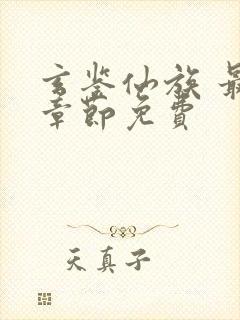 玄鉴仙族 最
章节免费
天真子